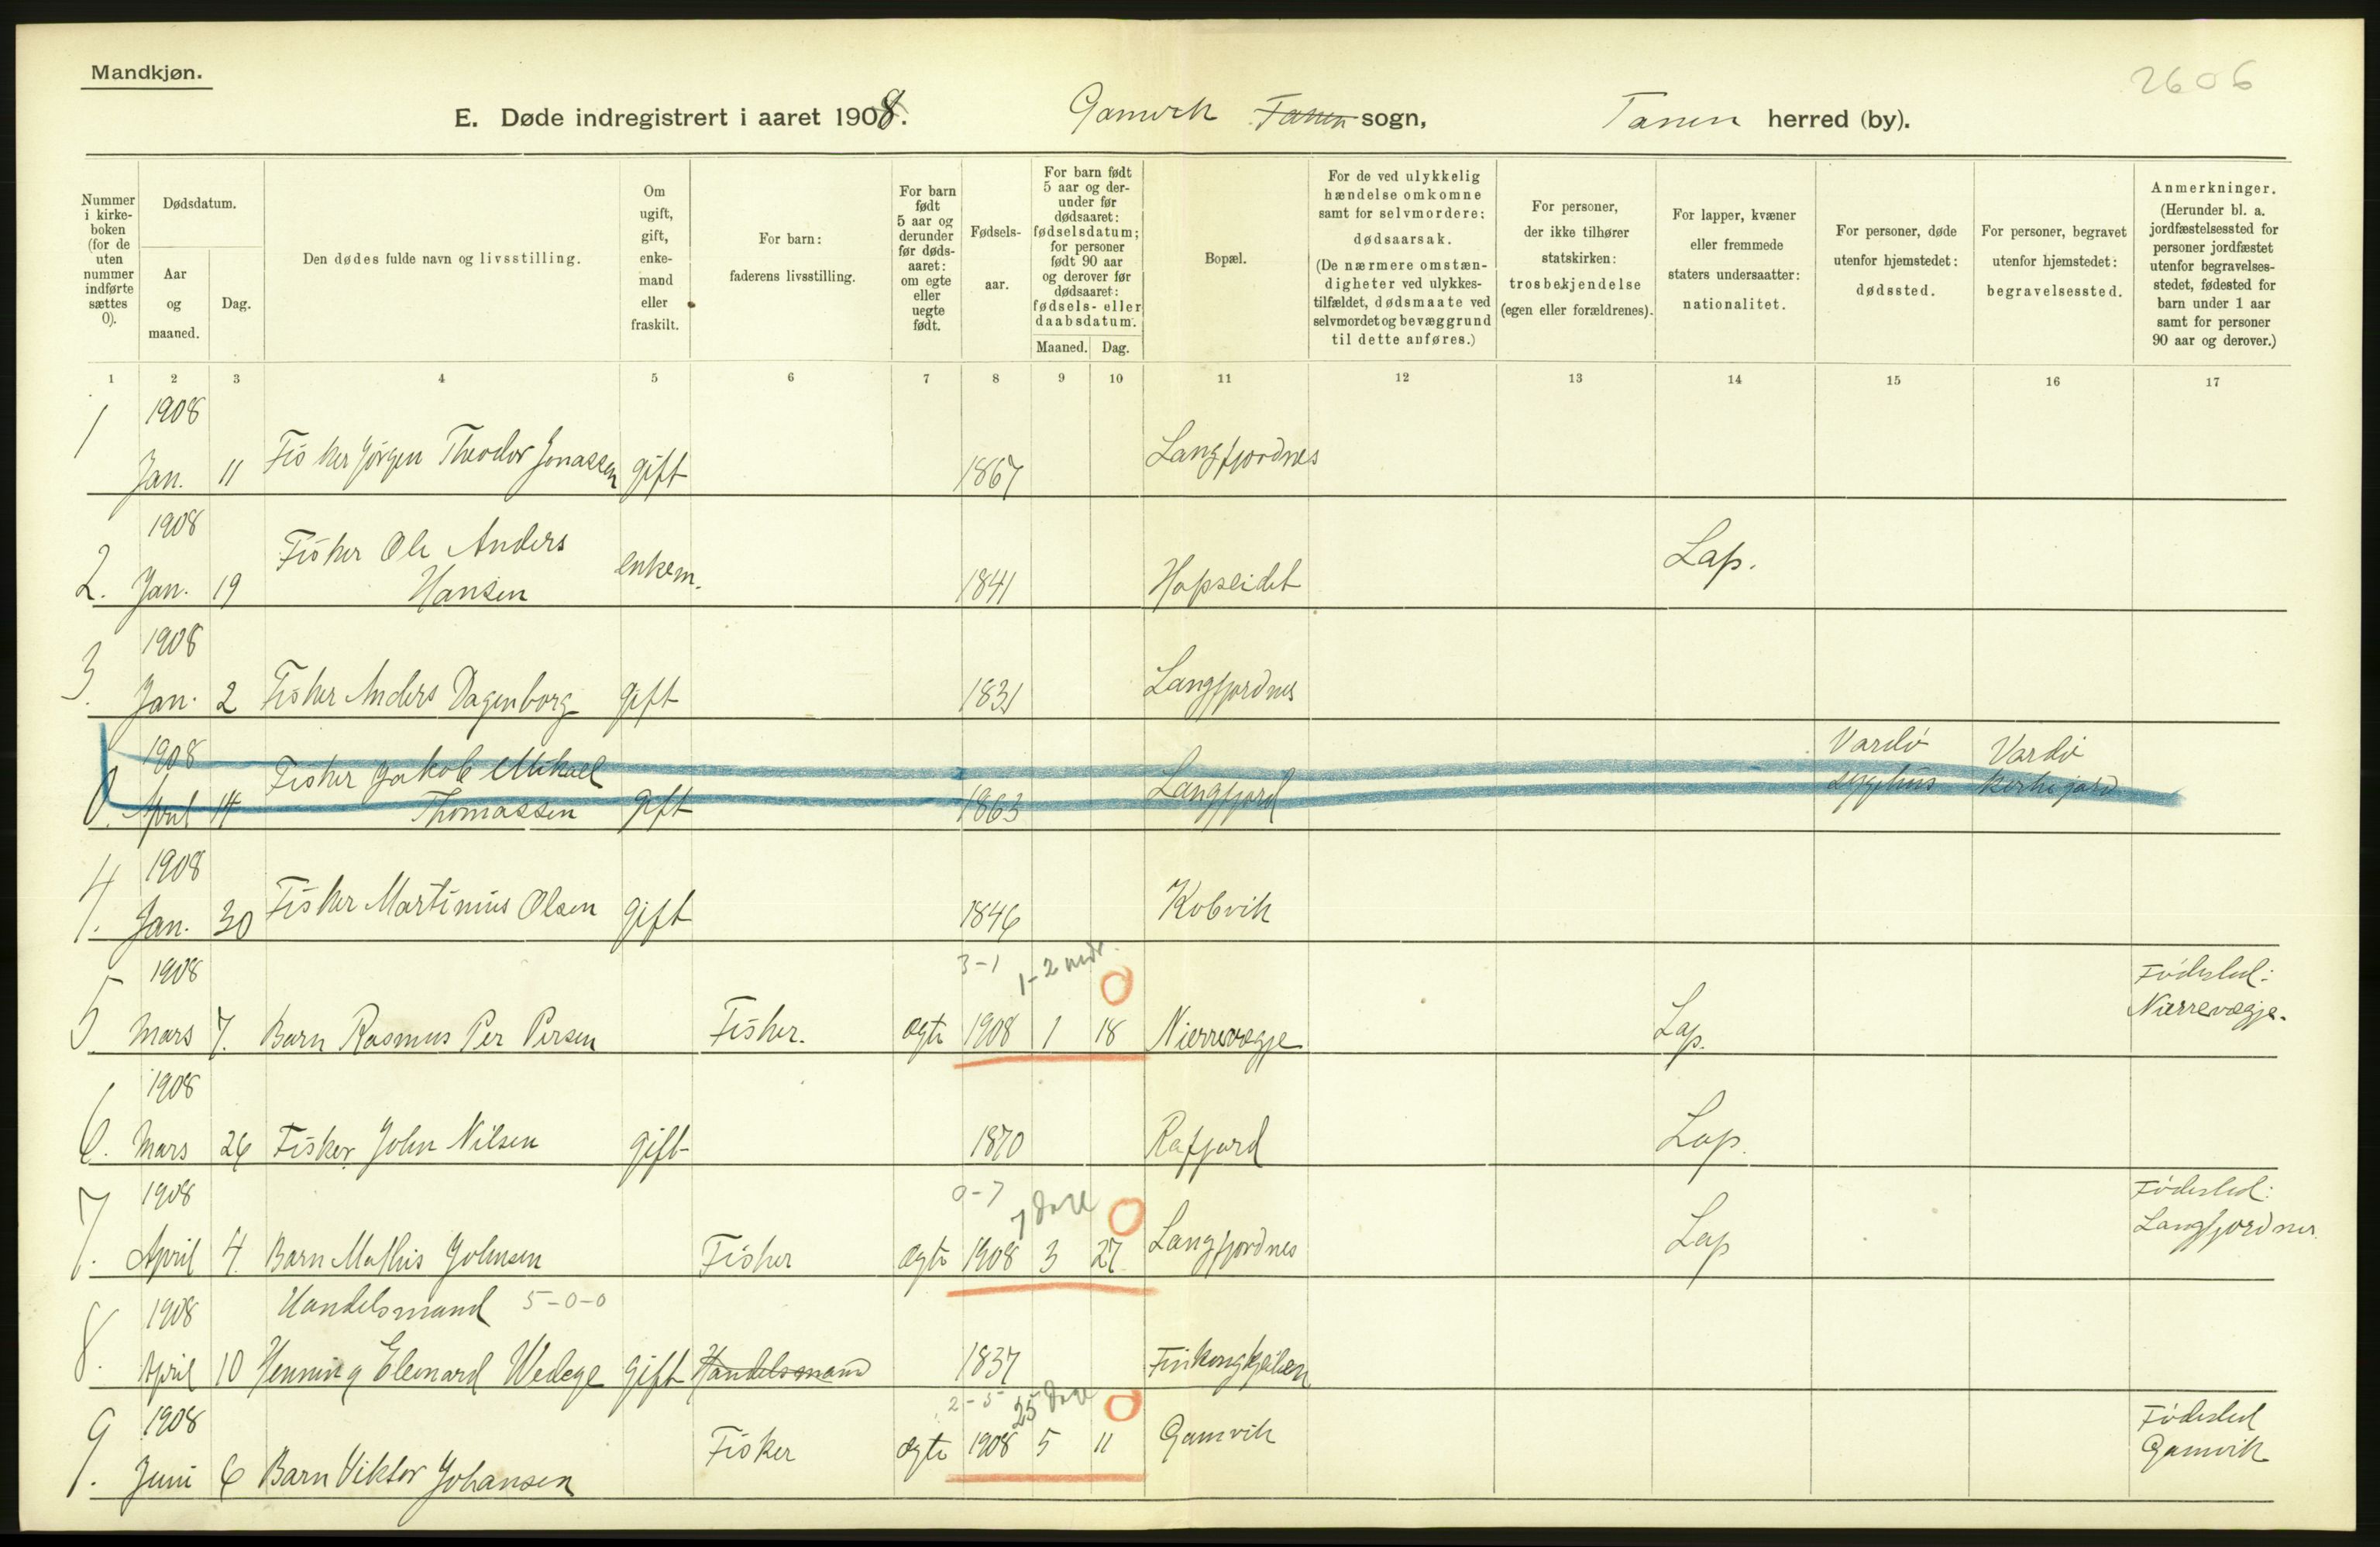 Mandkjøn.
2606
E. Døde indregistrert i aaret 1908. Gamvik Tanen sogn, Tanen herred (by).
Nummer i kirke- boken (for de uten nummer indførte sættes 0).
Dødsdatum.
Aar og maaned.
Dag.
Den dødes fulde navn og livsstilling.
Om ugift, gift, enke- mand eller fraskilt.
For barn: faderens livsstilling.
For barn født 5 aar og derunder før døds- aaret: om egte eller uegte født.
Fødsels- aar.
For barn født 5 aar og der- under før dødsaaret: fødselsdatum; for personer født 90 aar og derover før dødsaaret: fødsels- eller daabsdatum.
Maaned. Dag.
Bopæl.
For de ved ulykkelig hændelse omkomne samt for selvmordere: dødsaarsak. (De nærmere omstæn- digheter ved ulykkes- tilfældet, dødsmaate ved selvmordet og bevæggrund til dette anføres.)
For personer, der ikke tilhører statskirken: trosbekjendelse (egen eller forældrenes).
For lapper, kvæner eller fremmede staters undersaatter: nationalitet.
For personer, døde utenfor hjemstedet: dødssted.
For personer, begravet utenfor hjemstedet: begravelsessted.
Anmerkninger. (Herunder bl. a. jordfæstelsessted for personer jordfæstet utenfor begravelses- stedet, fødested for barn under 1 aar samt for personer 90 aar og derover.)
1 2 3 4 5 6 7 8 9 10 11 12 13 14 15 16 17
1 1908
Jan. 11 Fisker Jørgen Theodor Jonassen gift 1867 Langfjordnes
1908
2. Jan. 19 Fisker Ole Anders
Hansen enkem. 1841 Hopseidet Lap.
1908
3. Jan. 2 Fisker Anders Dagenborg gift 1831 Langfjordnes
1908
0. April 14 Fisker Jakob Mikael
Thomassen gift 1863 Langfjord Vardø
sygehus Vardø
kirkegård
1908
4. Jan. 30 Fisker Martinius Olsen gift 1846 Kobvik
1908 3-1 1-2 mdr. Fødested:
5. Mars 7. Barn Rasmus Per Persen Fisker. ægte 1908 1 18 Nierrevægje Lap. Nierrevægje.
1908
6. Mars 26 Fisker John Nilsen gift 1870 Rafjord Lap.
1908 0-7 7 dage Fødested:
7. April 4. Barn Mathis Johnsen Fisker ægte 1908 3 27 Langfjordnes Lap Langfjordnes.
1908 Handelsmand 5-0-0
8. April 10 Henning Elenard Wedege gift Handelsmand 1837 Finkongkjeilen
1908 2-5 25 dage Fødested
9. Juni 6 Barn Viktor Johansen Fisker ægte 1908 5 11 Gamvik Gamvik